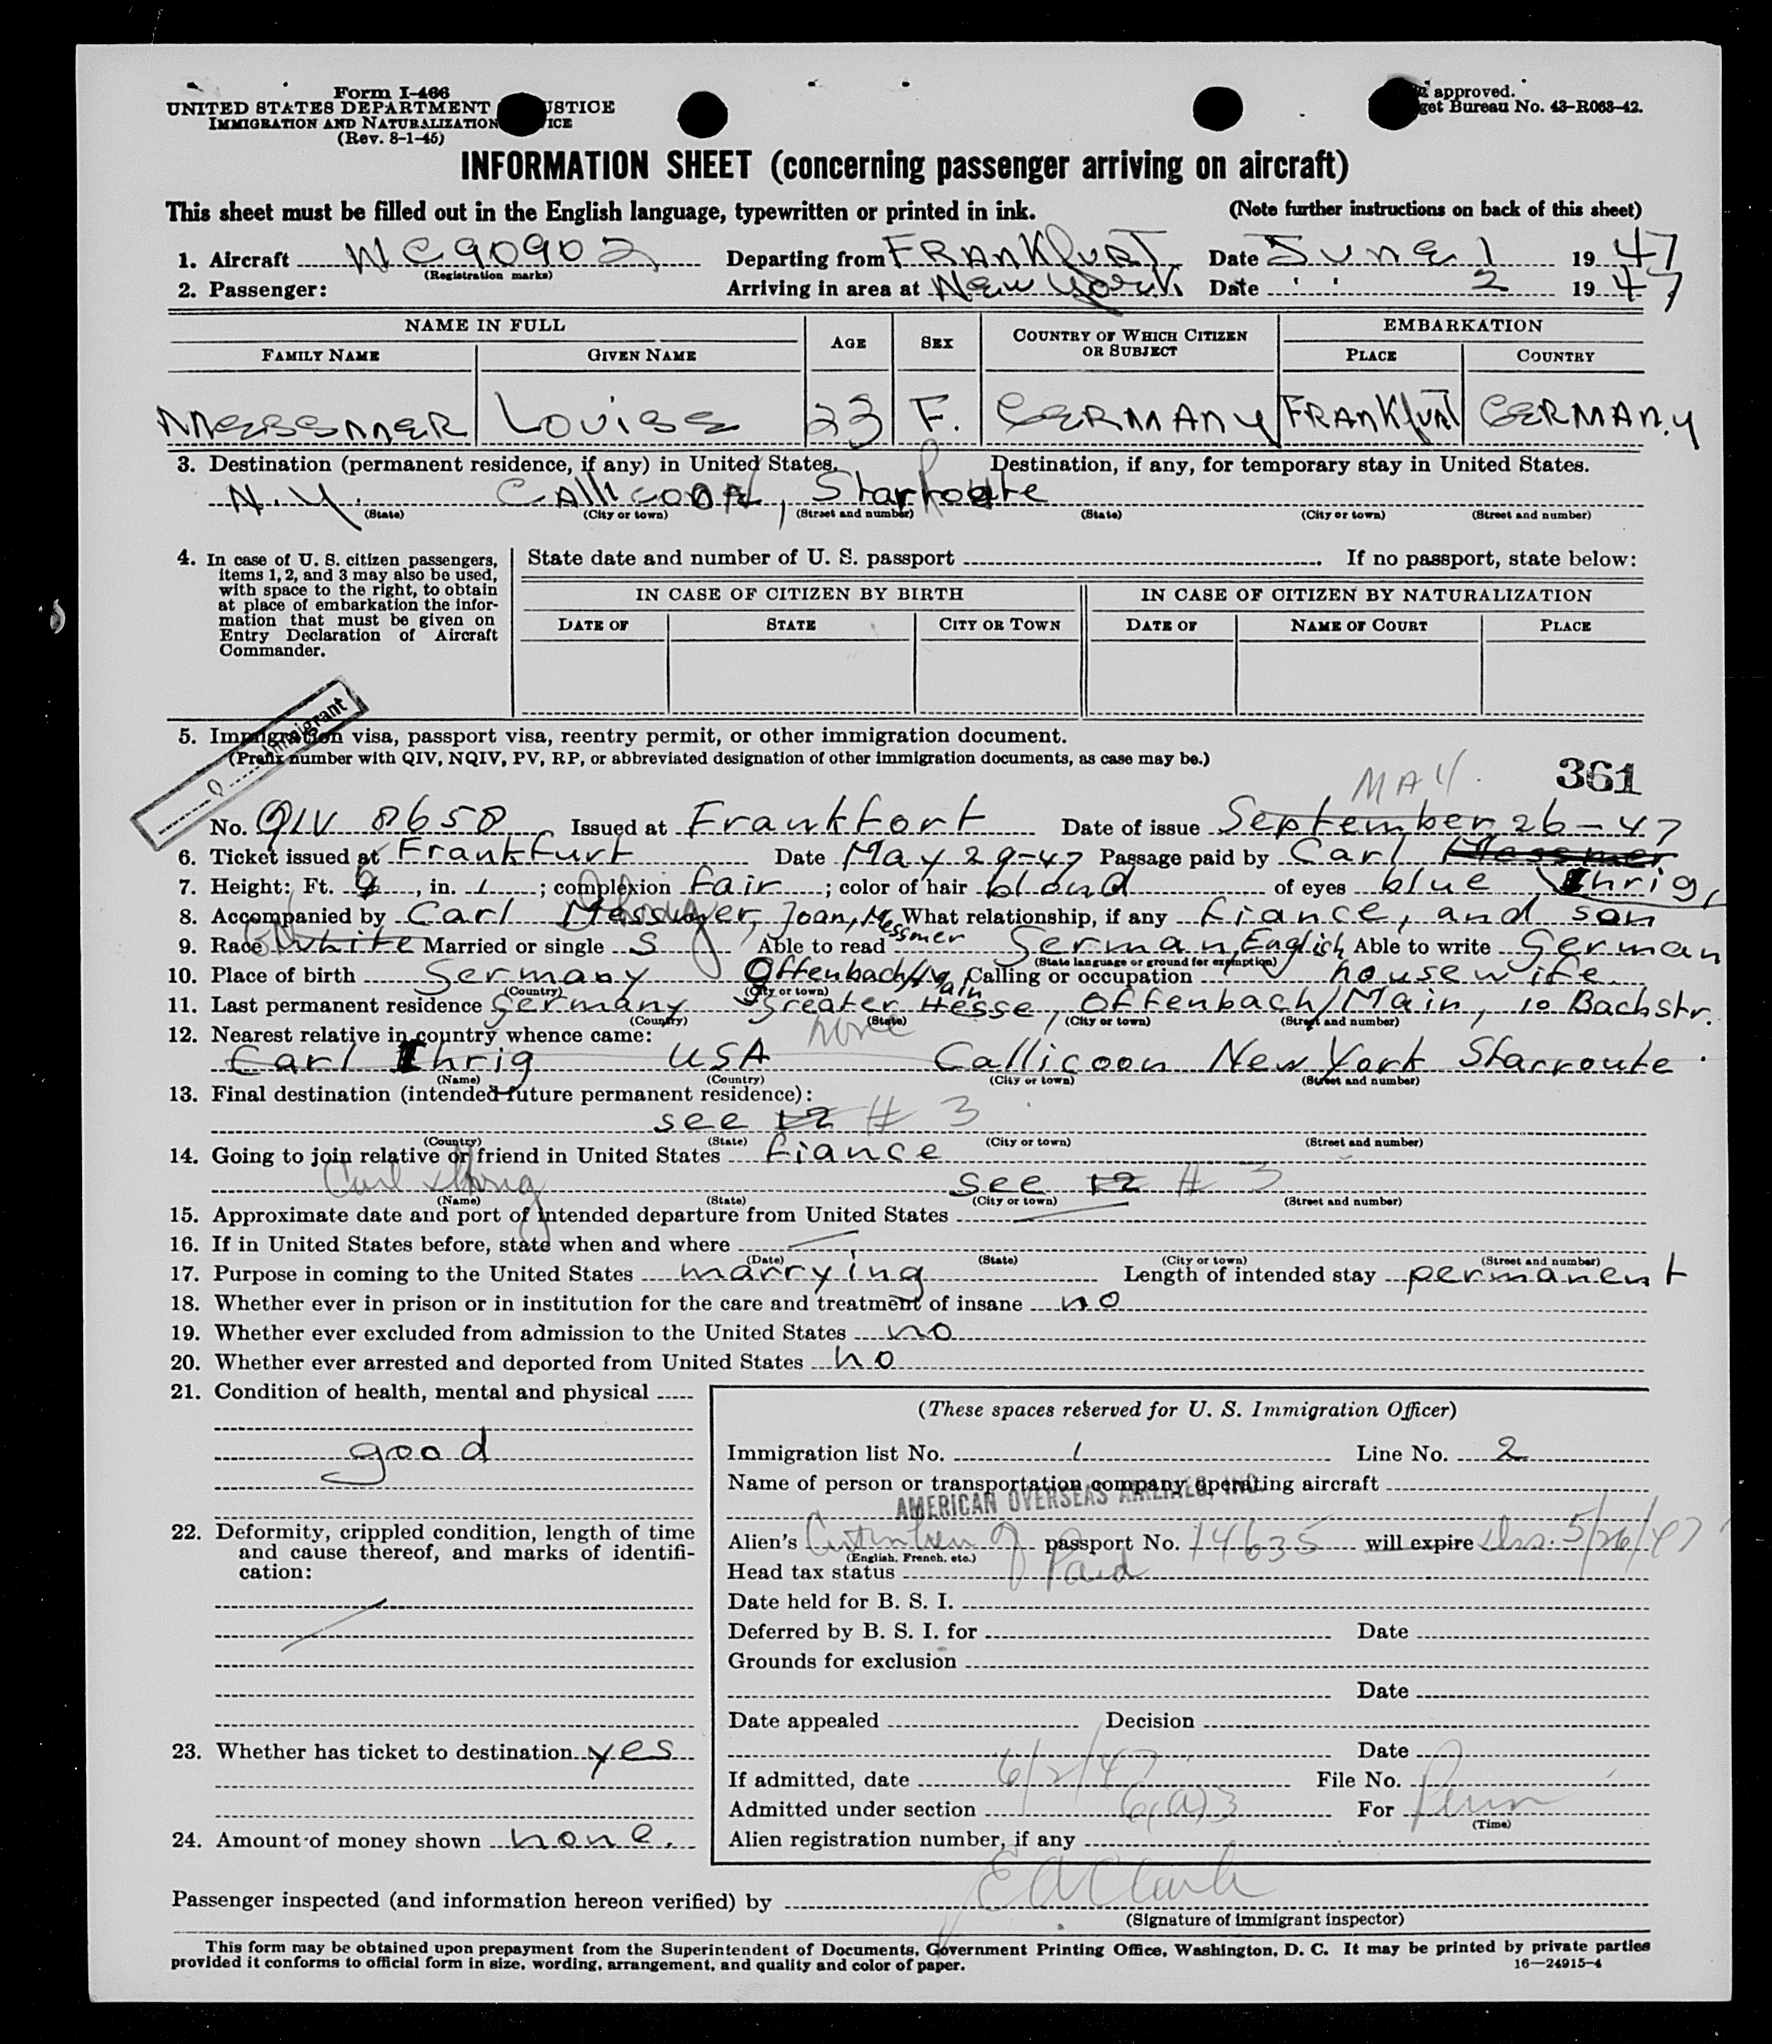 Form I-466
UNITED STATES DEPARTMENT JUSTICE
IMMIGRATION AND NATURALIZATION
(Rev. 8-1-45)
approved.
get Bureau No. 43-R068-42.
INFORMATION SHEET (concerning passenger arriving on aircraft)
This sheet must be filled out in the English language, typewritten or printed in ink. (Note further instructions on back of this sheet)
1. Aircraft NC90902 Departing from FRANKfURT Date June 1 1947
(Registration marks)
2. Passenger: Arriving in area at New York Date ' ' 2 1947
NAME IN FULL AGE SEX COUNTRY OF WHICH CITIZEN OR SUBJECT EMBARKATION
FAMILY NAME GIVEN NAME PLACE COUNTRY
MESSMER LOUISE 23 F. GERMANY FRANKfURT GERMANY
3. Destination (permanent residence, if any) in United States. Destination, if any, for temporary stay in United States.
N.Y. CALLICOON, Starroute
(State) (City or town) (Street and number) (State) (City or town) (Street and number)
4. In case of U. S. citizen passengers, items 1, 2, and 3 may also be used, with space to the right, to obtain at place of embarkation the information that must be given on Entry Declaration of Aircraft Commander.
State date and number of U. S. passport If no passport, state below:
IN CASE OF CITIZEN BY BIRTH IN CASE OF CITIZEN BY NATURALIZATION
DATE OF STATE CITY OR TOWN DATE OF NAME OF COURT PLACE
Immigrant
5. Immigration visa, passport visa, reentry permit, or other immigration document.
(Prefix number with QIV, NQIV, PV, RP, or abbreviated designation of other immigration documents, as case may be.)
MAY. 361
No. QIV 8658 Issued at Frankfort Date of issue September 26-47
6. Ticket issued at Frankfurt Date May 29-47 Passage paid by Carl Messmer
7. Height: Ft. , in. 1; complexion fair; color of hair blond of eyes blue Ihrig,
8. Accompanied by Carl Messmer, Joan, Messmer What relationship, if any fiance, and son
9. Race White Married or single S Able to read German, English Able to write German
(State language or ground for exemption)
10. Place of birth Germany Offenbach/Main Calling or occupation housewife.
(Country) (City or town)
11. Last permanent residence Germany Greater Hesse, Offenbach/Main, 10 Bachstr.
(Country) (State) (City or town) (Street and number)
12. Nearest relative in country whence came: none
Carl Ihrig USA Callicoon New York Starroute
(Name) (Country) (City or town) (Street and number)
13. Final destination (intended future permanent residence):
see 12 # 3
(Country) (State) (City or town) (Street and number)
14. Going to join relative or friend in United States fiance
Carl Ihrig see 12 # 3
(Name) (State) (City or town) (Street and number)
15. Approximate date and port of intended departure from United States
16. If in United States before, state when and where
(Date) (State) (City or town) (Street and number)
17. Purpose in coming to the United States marrying Length of intended stay permanent
18. Whether ever in prison or in institution for the care and treatment of insane no
19. Whether ever excluded from admission to the United States no
20. Whether ever arrested and deported from United States no
21. Condition of health, mental and physical
good
22. Deformity, crippled condition, length of time and cause thereof, and marks of identification:
23. Whether has ticket to destination yes
24. Amount of money shown none.
(These spaces reserved for U. S. Immigration Officer)
Immigration list No. 1 Line No. 2
Name of person or transportation company operating aircraft
AMERICAN OVERSEAS AIRLINES, INC.
Alien's passport No. 14635 will expire Iss. 5/26/47
(English, French, etc.)
Head tax status Paid
Date held for B. S. I.
Deferred by B. S. I. for Date
Grounds for exclusion
Date
Date appealed Decision
Date
If admitted, date 6/2/47 File No.
Admitted under section 6(a)3 For Perm
(Time)
Alien registration number, if any
Passenger inspected (and information hereon verified) by E A Clark
(Signature of immigrant inspector)
This form may be obtained upon prepayment from the Superintendent of Documents, Government Printing Office, Washington, D. C. It may be printed by private parties
provided it conforms to official form in size, wording, arrangement, and quality and color of paper. 16—24915-4